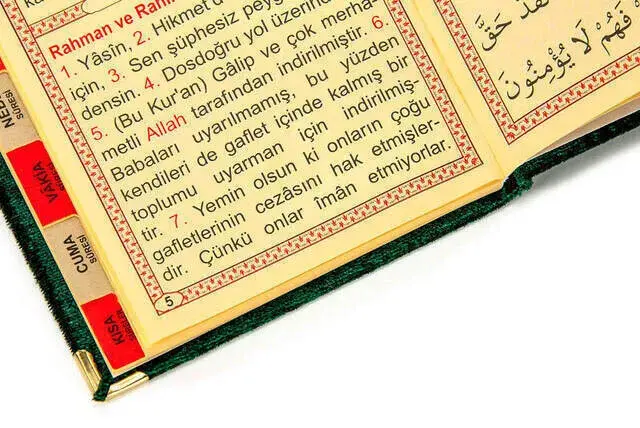 Rahman ve Rahî
1. Yâsîn, 2. Hikmet
için, 3. Sen şüphesiz peyg
densin. 4. Dosdoğru yol üzerin
5. (Bu Kur'an) Gâlip ve çok merha-
metli Allah tarafından indirilmiştir. 6.
Babaları uyarılmamış, bu yüzden
kendileri de gaflet içinde kalmış bir
toplumu uyarman için indirilmiş-
tir. 7. Yemin olsun ki onların çoğu
gafletlerinin cezâsını hak etmişler-
dir. Çünkü onlar îmân etmiyorlar.
5
SÛRESİ
VÂKIA
SÛRESİ
CUMA
SÛRESİ
KISA
SÛRELER
حَقَّ
فَهُمْ لَا يُؤْمِنُونَ